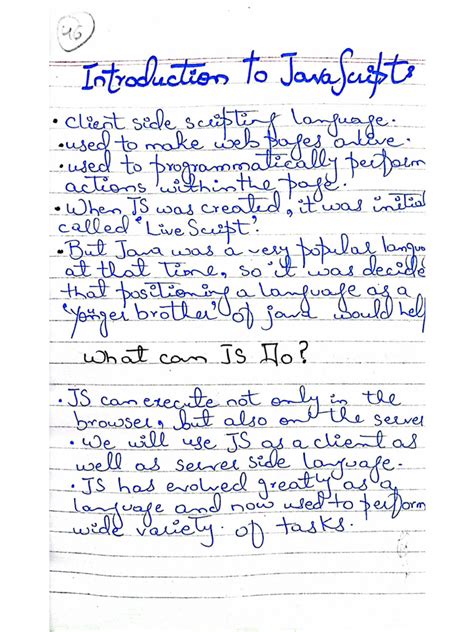 Introduction to JavaScripts
• Client side scripting language.
• used to make web pages
• used to programmatically perform
actions within the page.
• When JS was created, it was initial
called 'Live Script'.
• But Java was a very popular langu
at that time, so it was decide
that positioning a language as a
'yonger brother' of java would help
What can JS Do?
• JS can execute not only in the
browser, but also on the server
• We will use JS as a client as
well as server side language.
• JS has evolved greatly as a
language and now used to perform
wide variety of tasks.